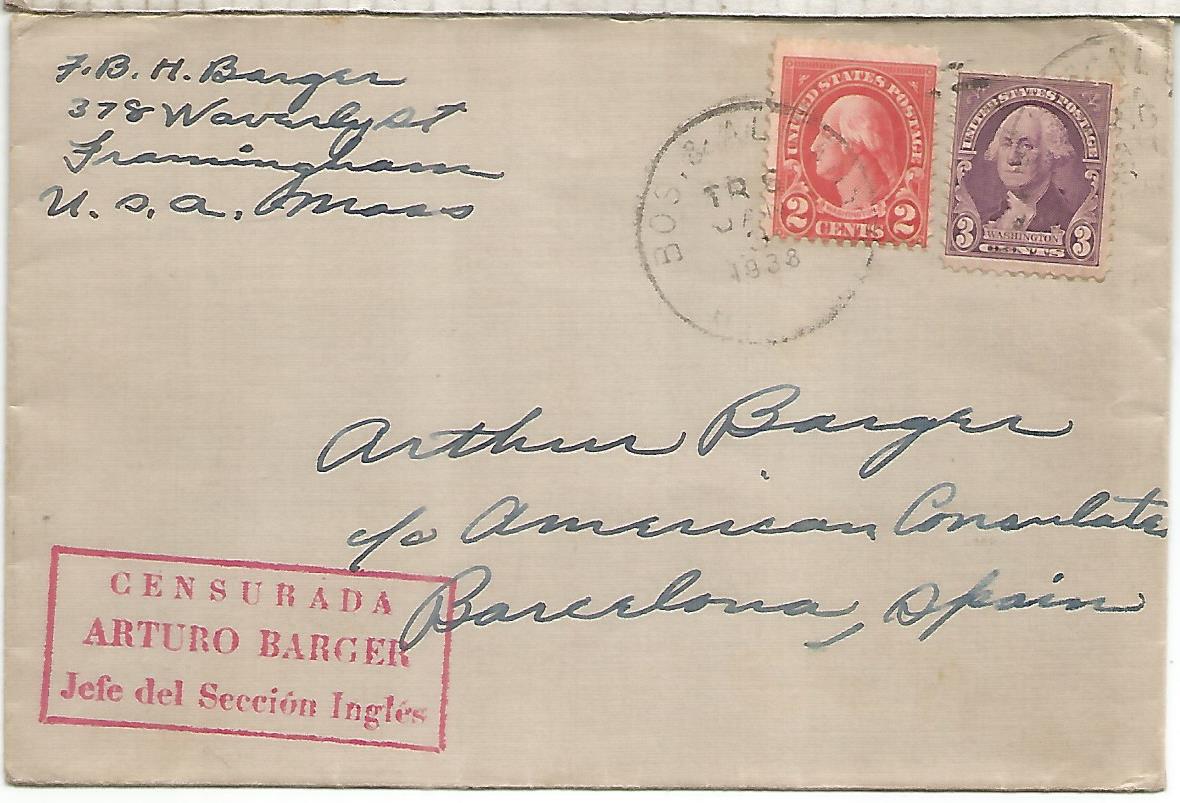 F. B. H. Barger
378 Waverly St
Framingham
U. S. A. Mass
UNITED STATES POSTAGE
2 CENTS 2
UNITED STATES POSTAGE
WASHINGTON
3 CENTS 3
BOS. & ALB
TR 8
1938
Arthur Barger
c/o American Consulate
Barcelona, Spain
CENSURADA
ARTURO BARGER
Jefe del Sección Inglés